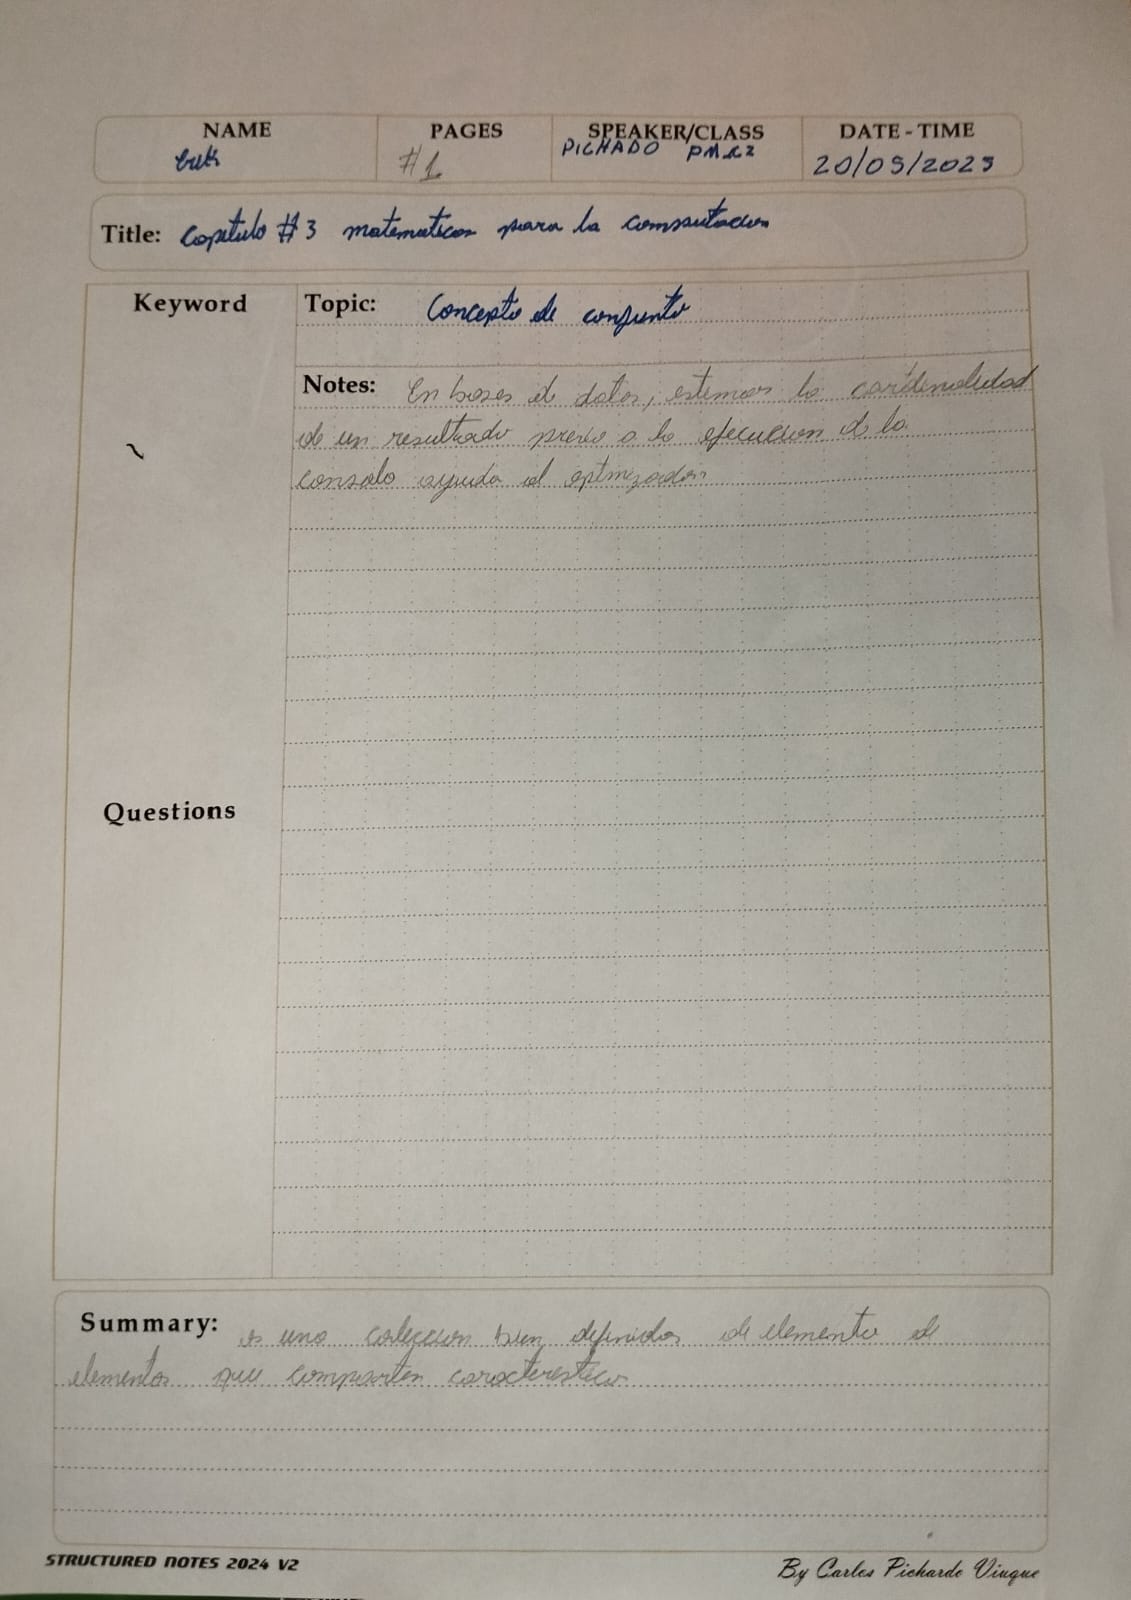 NAME PAGES SPEAKER/CLASS DATE - TIME
#1 PICHADO 20/09/2025
Title: Capitulo #3 matematicas para la computacion
Keyword
Topic: Concepto de conjunto
Notes: En bases de datos, estemas la cardinalidad
de un resultado previo a la ejecucion de la
consulo ayuda al optmizador
Questions
Summary: es una coleccion bien definidas de elemento de
elementos que comparten caracteristicas
STRUCTURED NOTES 2024 V2
By Carlos Pichardo Viuque